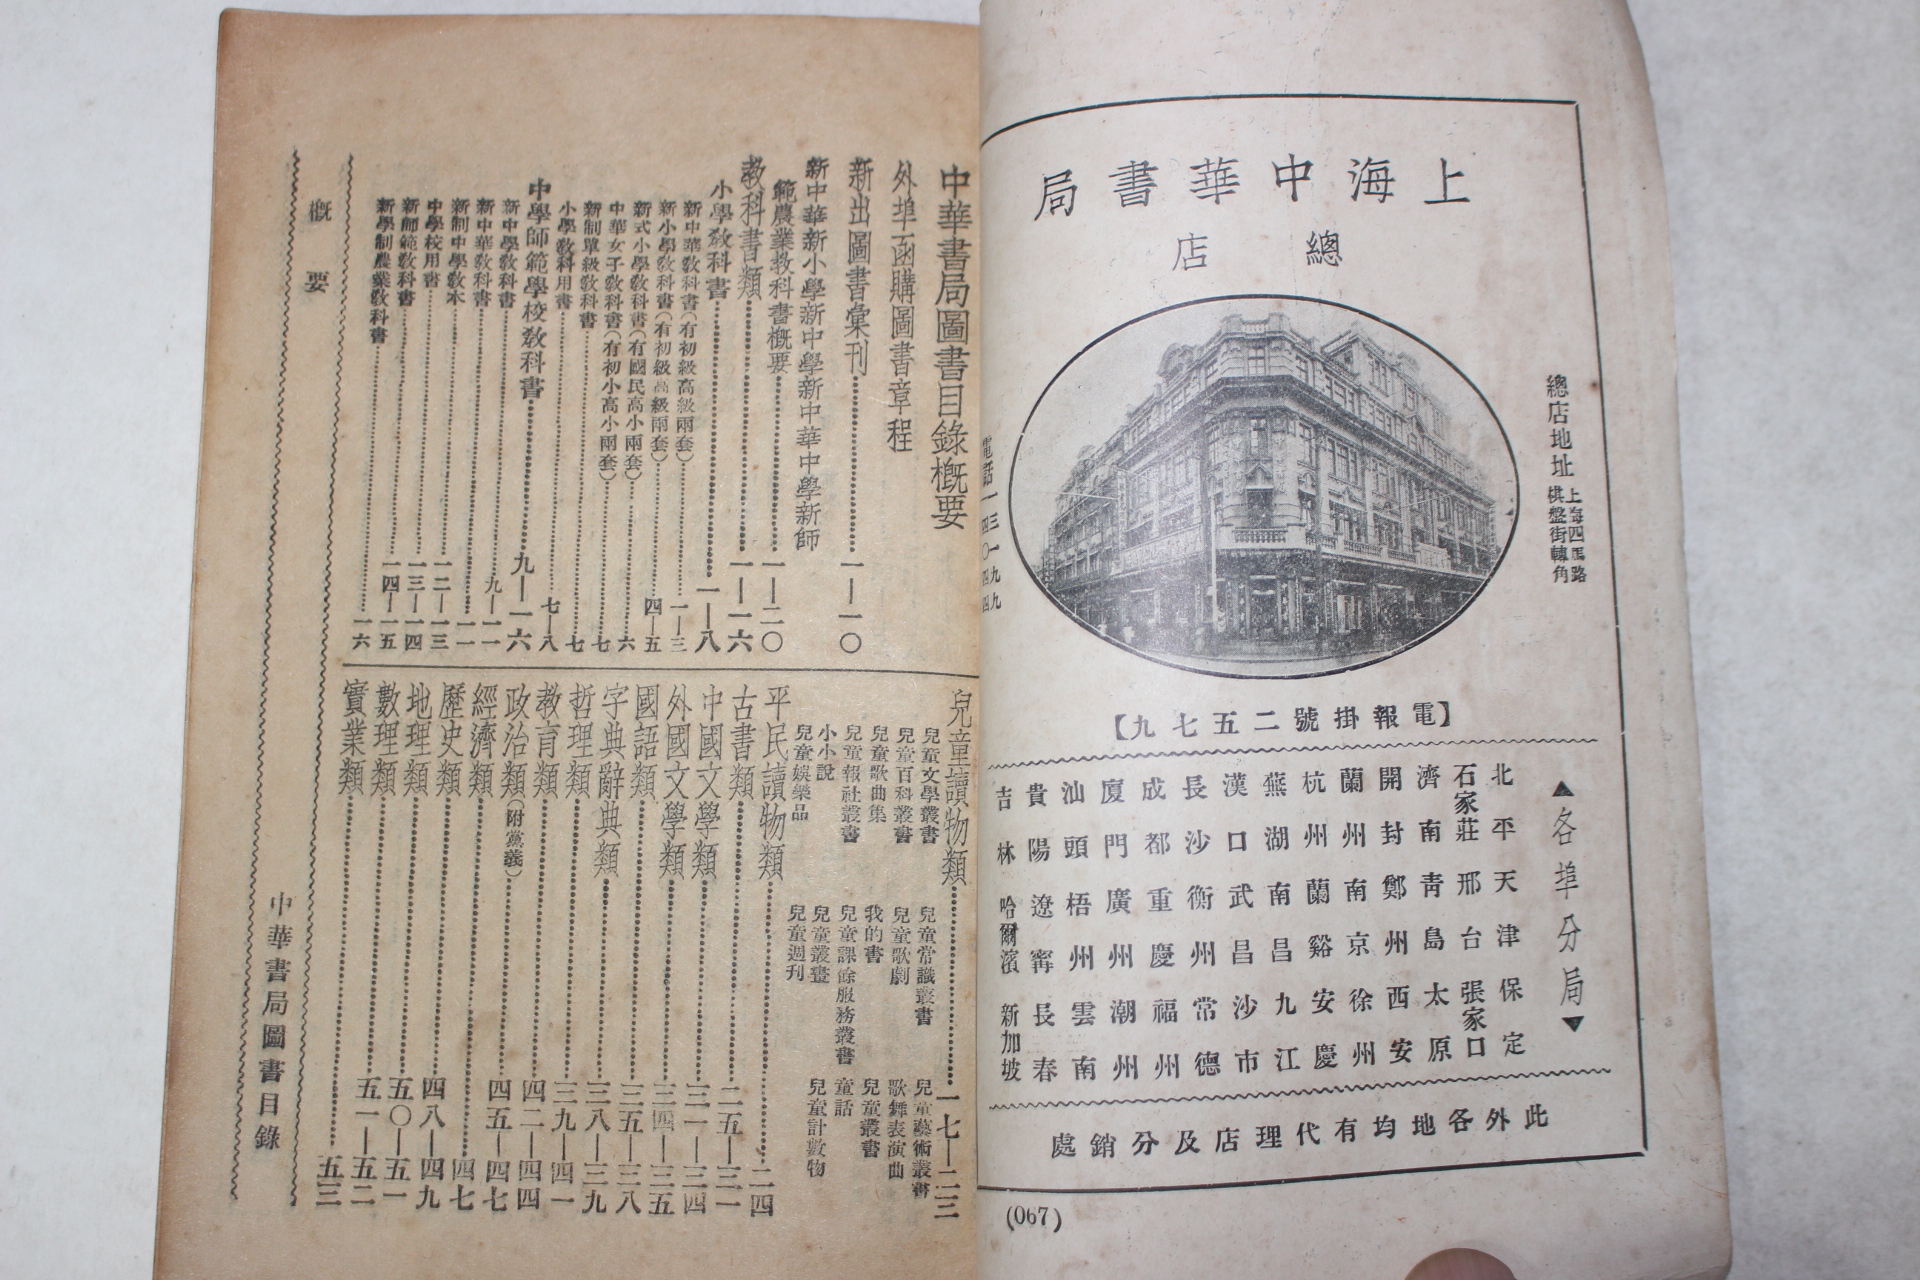 上海中華書局
總店
總店地址
上海四馬路
棋盤街轉角
電話
一三一九九
一四〇四四
【電報掛號二五七九】
▲各埠分局▼
北平 天津 保定
石家莊 邢台 張家口
濟南 青島 太原
開封 鄭州 西安
蘭州 南京 徐州
杭州 蘭谿 安慶
蕪湖 南昌 九江
漢口 武昌 沙市
長沙 衡州 常德
成都 重慶 福州
廈門 廣州 潮州
汕頭 梧州 雲南
貴陽 遼寧 長春
吉林 哈爾濱 新加坡
此外各地均有代理店及分銷處
(067)
中華書局圖書目錄概要
外埠函購圖書章程
新出圖書彙刊 一—一〇
新中華新小學新中學新中華中學新師
範農業教科書概要 一—二〇
教科書類 一—一六
小學教科書 一—八
新中華教科書(有初級高級兩套) 一—三
新小學教科書(有初級高級兩套) 四—五
新式小學教科書(有國民高小兩套) 六
中華女子教科書(有初小高小兩套) 七
新制單級教科書 七
小學教科用書 七—八
中學師範學校教科書 九—一六
新中學教科書 九—一一
新中華教科書 一一
新制中學教本 一二—一三
中學校用書 一三—一四
新師範教科書 一四—一五
新學制農業教科書 一六
兒童讀物類 一七—二三
兒童文學叢書 兒童常識叢書 兒童藝術叢書
兒童百科叢書 兒童歌劇 歌舞表演曲
兒童歌曲集 我的書 兒童叢書
兒童報社叢書 兒童課餘服務叢書 童話
小小說 兒童叢畫 兒童計數物
兒童娛樂品 兒童週刊
平民讀物類 二四
古書類 二五—三一
中國文學類 三一—三四
外國文學類 三四—三五
國語類 三五—三八
字典辭典類 三八—三九
哲理類 三九—四一
教育類 四二—四四
政治類(附黨義) 四五—四七
經濟類 四七
歷史類 四八—四九
地理類 五〇—五一
數理類 五一—五二
實業類 五三
概要
中華書局圖書目錄